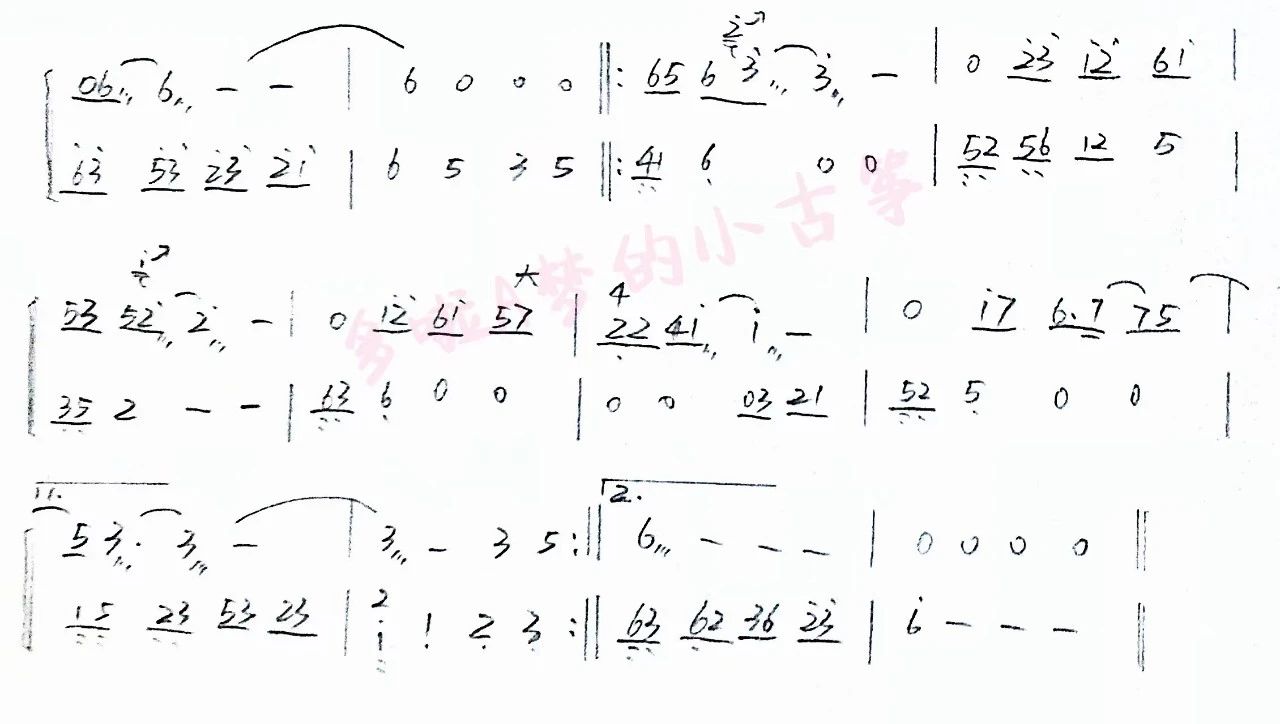 06 6 - - | 6 0 0 0 ||: 65 6 3 3 - | 0 23 12 61 |
63 53 23 21 | 6 5 3 5 ||: 41 6 0 0 | 52 56 12 5 |
多啦A梦的小古筝
53 52 2 - | 0 12 61 57 | 22 41 1 - | 0 17 6.7 75 |
35 2 - - | 63 6 0 0 | 0 0 03 21 | 52 5 0 0 |
1.
2.
5 3. 3 - | 3 - 3 5 :|| 6 - - - | 0 0 0 0 ||
15 23 53 23 | 1 1 2 3 :|| 63 62 36 23 | 6 - - - ||